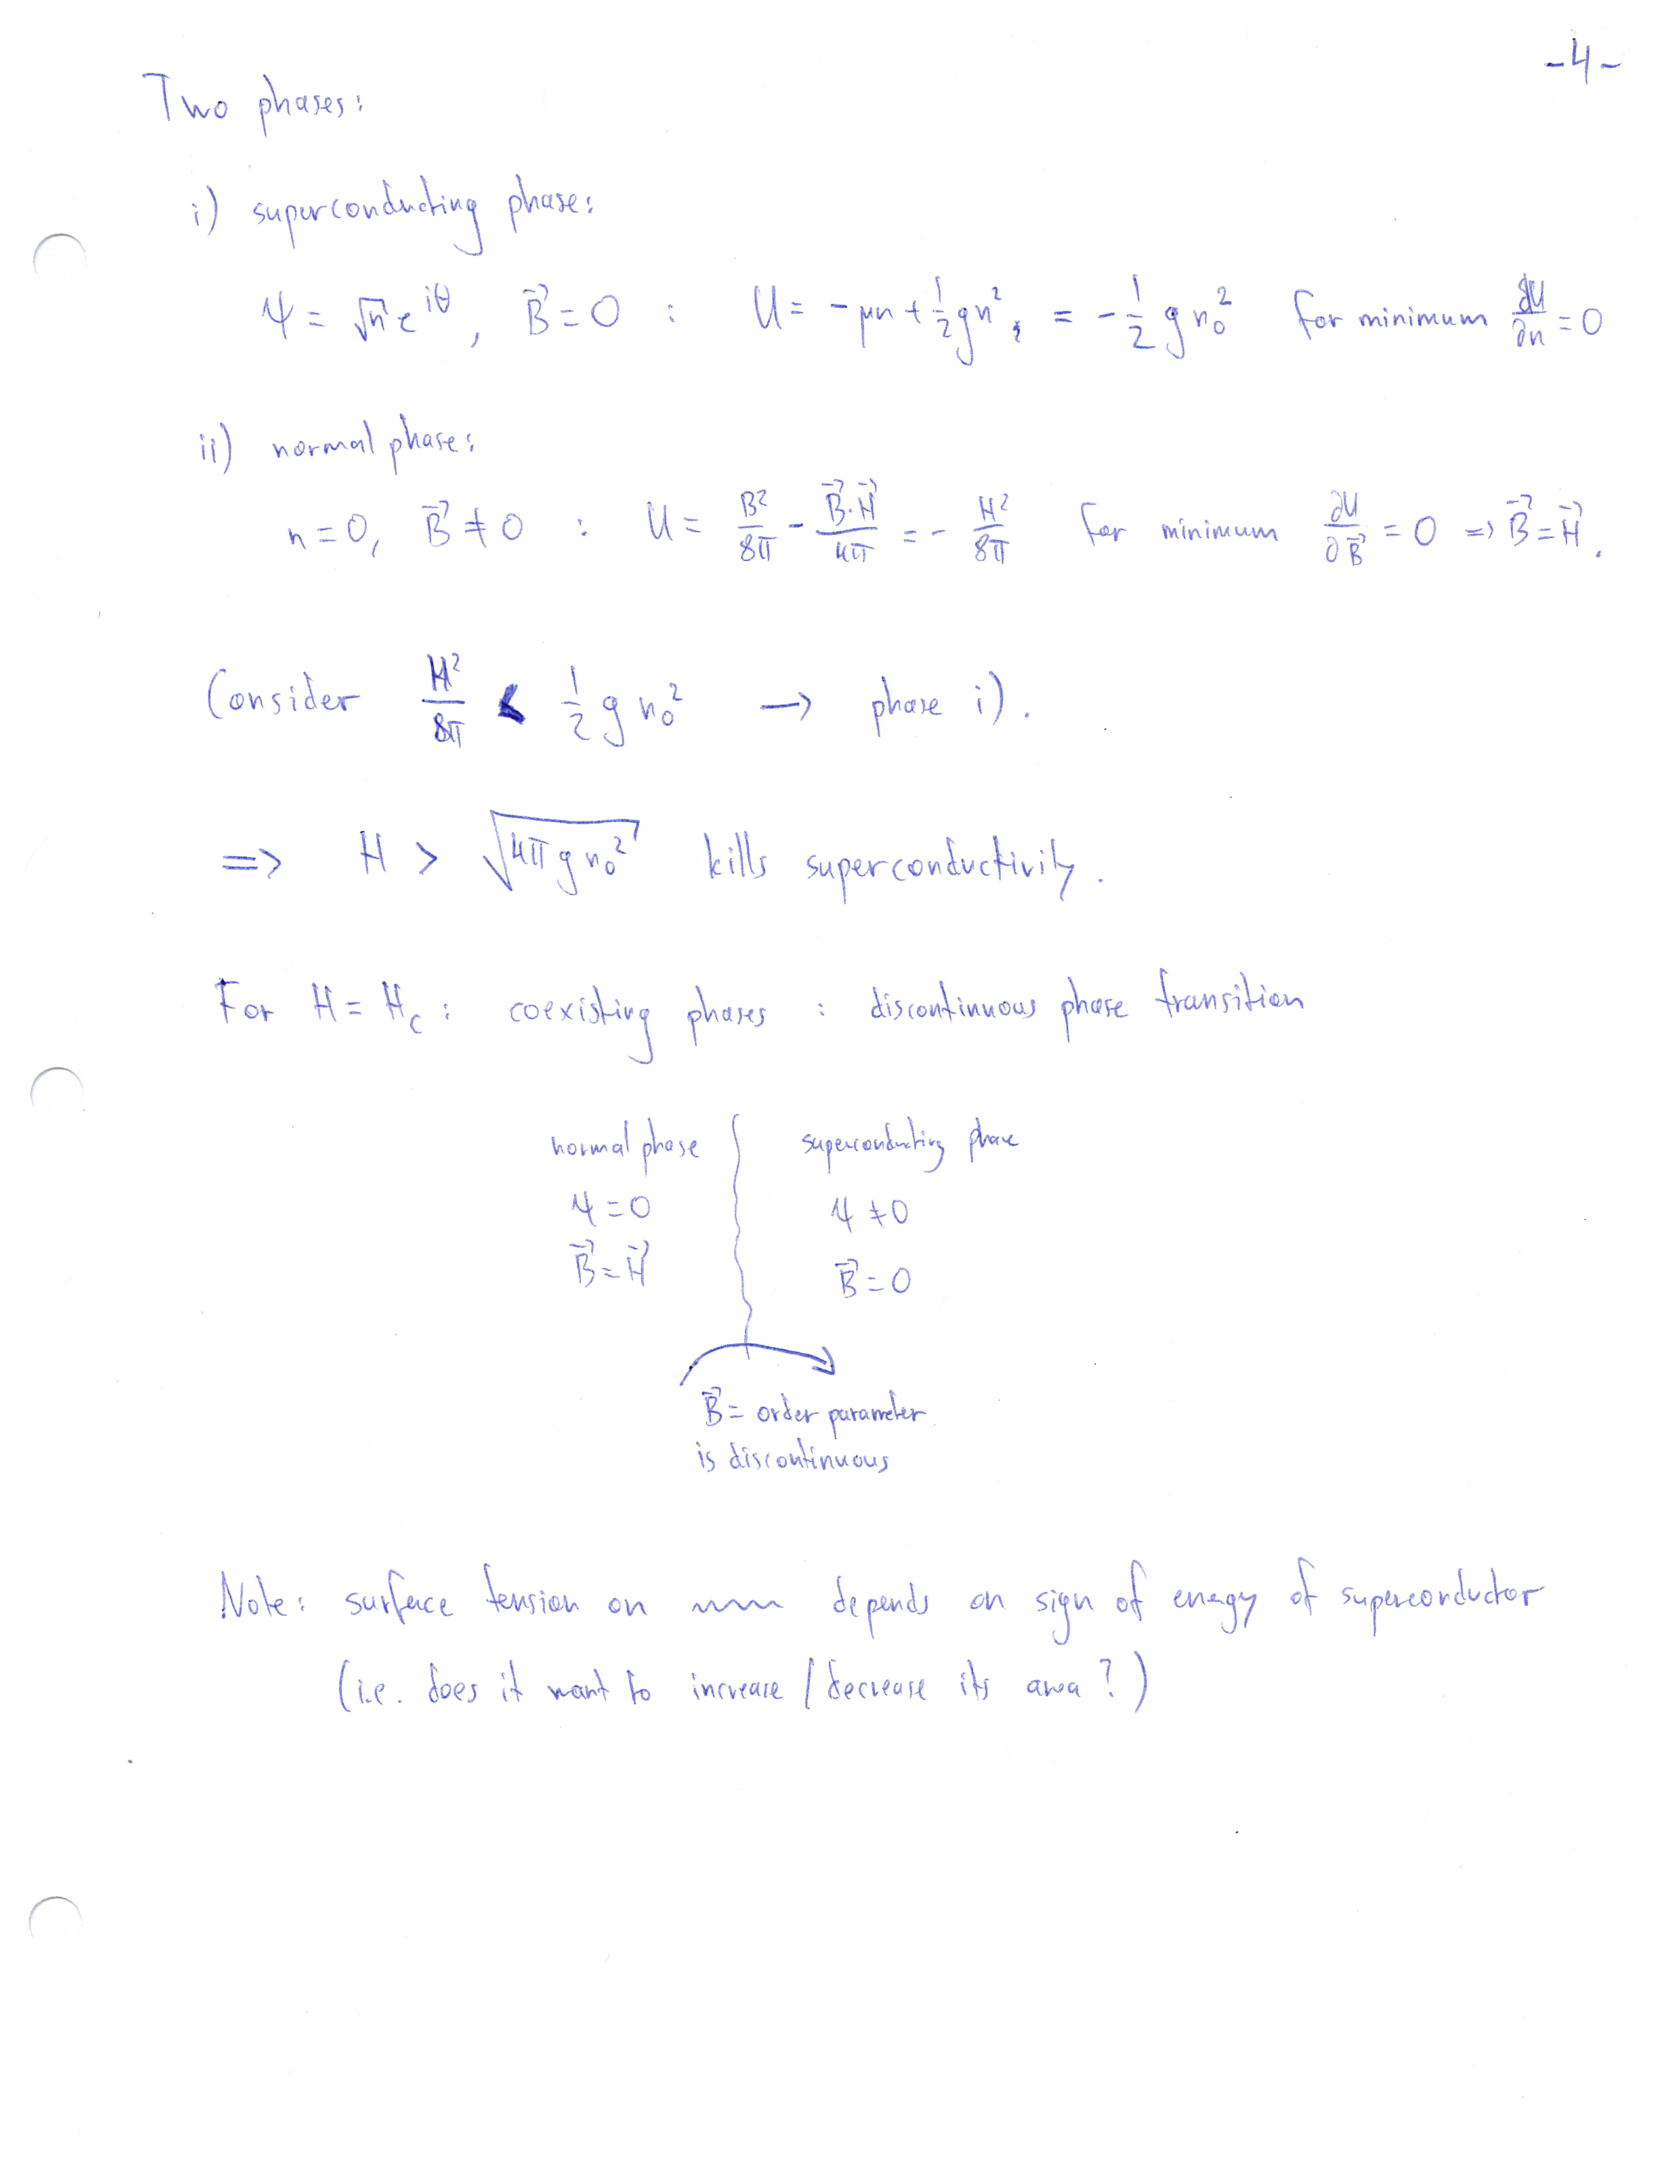 -4-
Two phases:
i) superconducting phase:
ψ = √n e^{iθ}, B⃗ = 0 : U = -μn + ½gn², = -½ g n₀² for minimum ∂U/∂n = 0
ii) normal phase:
n = 0, B⃗ ≠ 0 : U = B²/8π - B⃗·H⃗/4π = - H²/8π for minimum ∂U/∂B⃗ = 0 => B⃗ = H⃗.
Consider H²/8π < ½ g n₀² → phase i).
=> H > √(4π g n₀²) kills superconductivity.
For H = H_c : coexisting phases : discontinuous phase transition
normal phase superconducting phase
ψ = 0 ψ ≠ 0
B⃗ = H⃗ B⃗ = 0
B⃗ = order parameter
is discontinuous
Note: surface tension on depends on sign of energy of superconductor
(i.e. does it want to increase / decrease its area?)